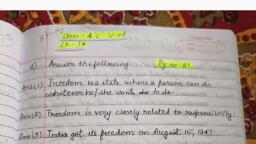 Class - 4 C V.ed
Ch - 14
A) Answer the following
Ans(1) Freedom is a state where a person can do
whatever he/she wants to do.
Ans(2) Freedom is very closely related to responsibility.
Ans(3) India got its freedom on August 15, 1947.